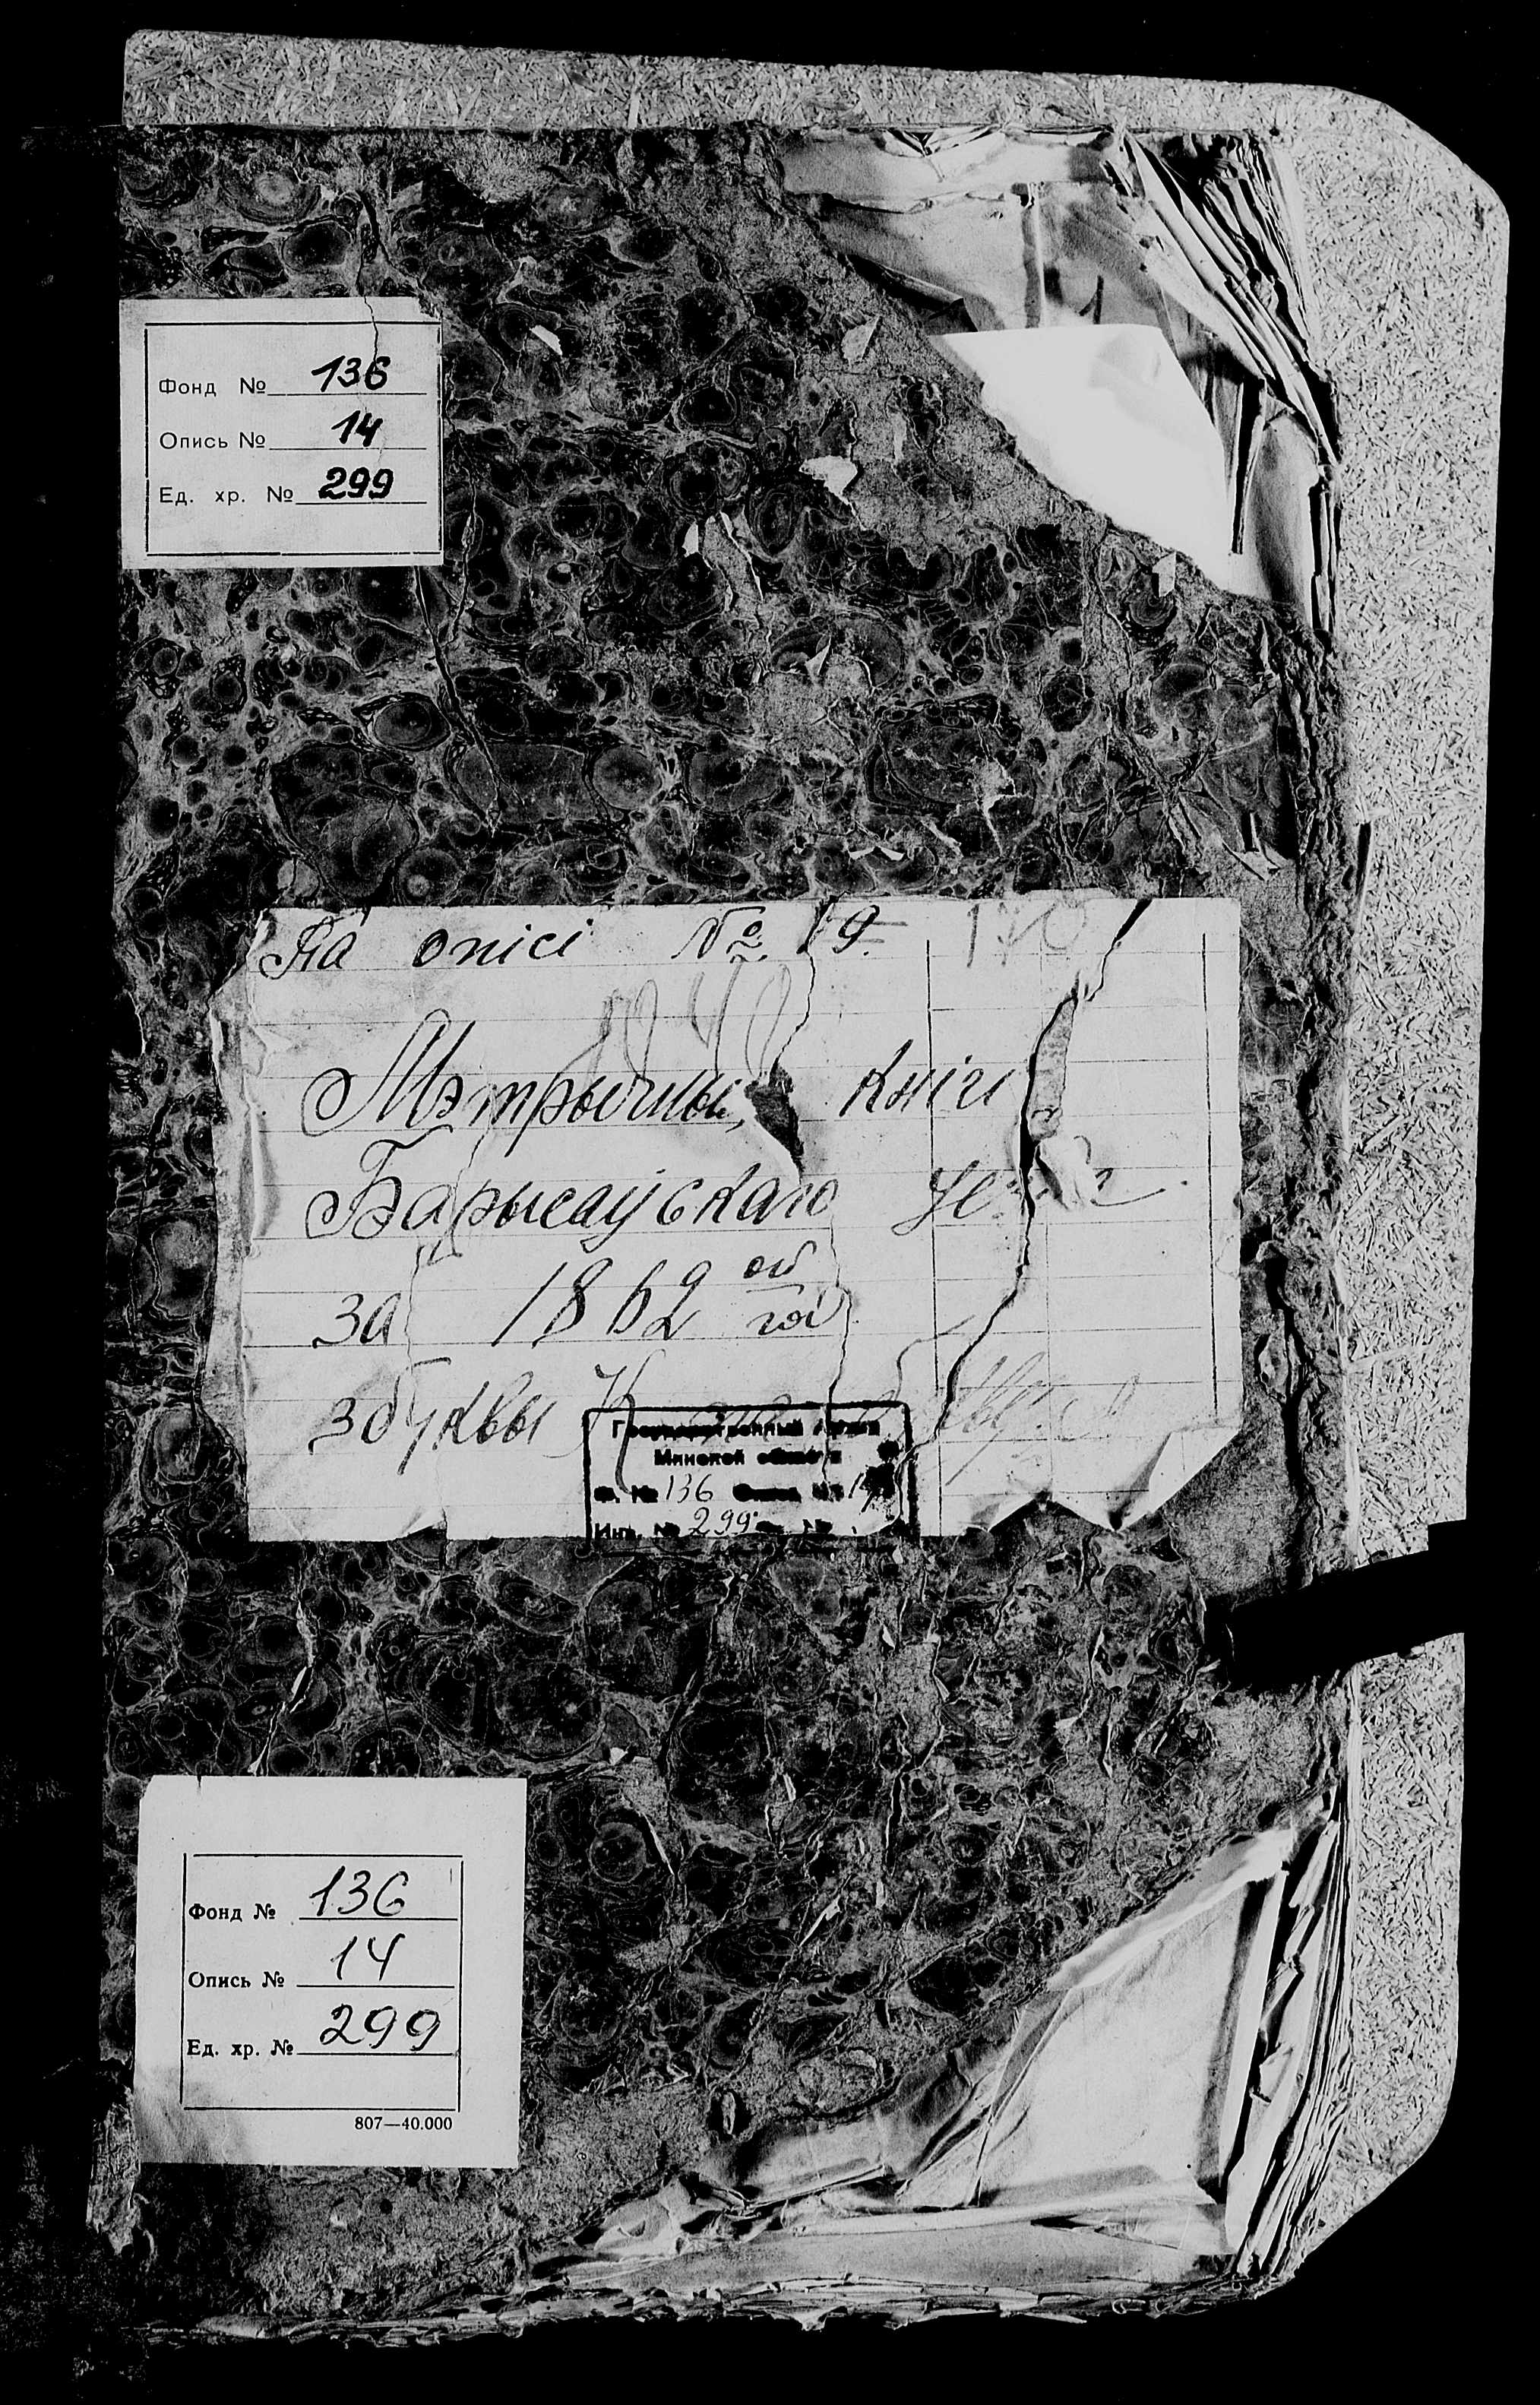 Фонд № 136
Опись № 14
Ед. хр. № 299
Па опісі № 19. 170
Мэтрычны, кнігі
Барысаўскаго
за 1862 ой год
з буквы К
Государственный Архив
Минской области
Ф. № 136 Опись № 14
Инв. № 299
Фонд № 136
Опись № 14
Ед. хр. № 299
807—40.000